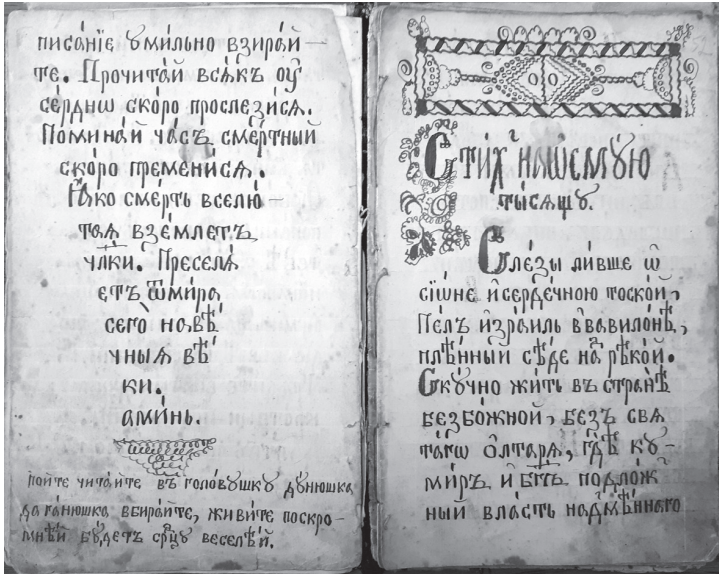 писа́нїе ѹми́льно взира́й
те. Прочита́й вся́къ оу
се́рднѡ ско́ро прослези́ся.
Помина́й ча́съ сме́ртный
ско́ро премени́ся.
Ꙗ҆́ко сме́рть вселю́
таѧ взе́млетъ
чл҃ки. Преселѧ́
етъ ѿ ми́ра
сего̀ на вѣ́
чныѧ вѣ́
ки.
ами́нь.
по́йте чита́йте въ голо́вушку ду́нюшка
да га́нюшка вбира́йте, живи́те поскро
мнѣ́й бу́детъ се́рдцу веселѣ́й.
Сти́хъ на ѡсму́ю
ты́сѧщу.
Сле́зы ли́вше ѡ҆
сїѡ́не и҆ серде́чною тоско́й,
Пе́лъ и҆зра́иль в вавило́нѣ,
плѣ́нный сѣ́де над рѣко́й.
Ску́чно жи́ть въ странѣ́
безбо́жной, безъ свѧ
та́гѡ ѻлтарѧ̀, гдѣ̀ ку
ми́ръ и҆ бг҃ъ подло́ж
ный вла́сть надмѣ́ннаго